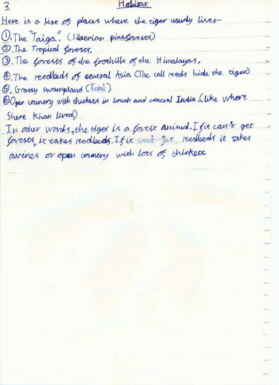 3. Habitat
Here is a list of places where the tiger usually lives—
①. The "Taiga." (Siberian pine forests)
②. The Tropical forests,
③. The forests of the foothills of the Himalayas,
④. The reedbeds of central Asia (The tall reeds hide the tiger)
⑤. Grassy swampland (Terai)
⑥ Open country with thickets in South and central India (like where
Shere Khan lived)
In other words, the tiger is a forest animal. If it can't get
forests, it takes reedbeds. If it can't get reedbeds it takes
or open country with lots of thickets